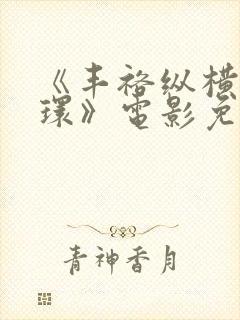 《丰裕纵横
环》电影免
青神香月